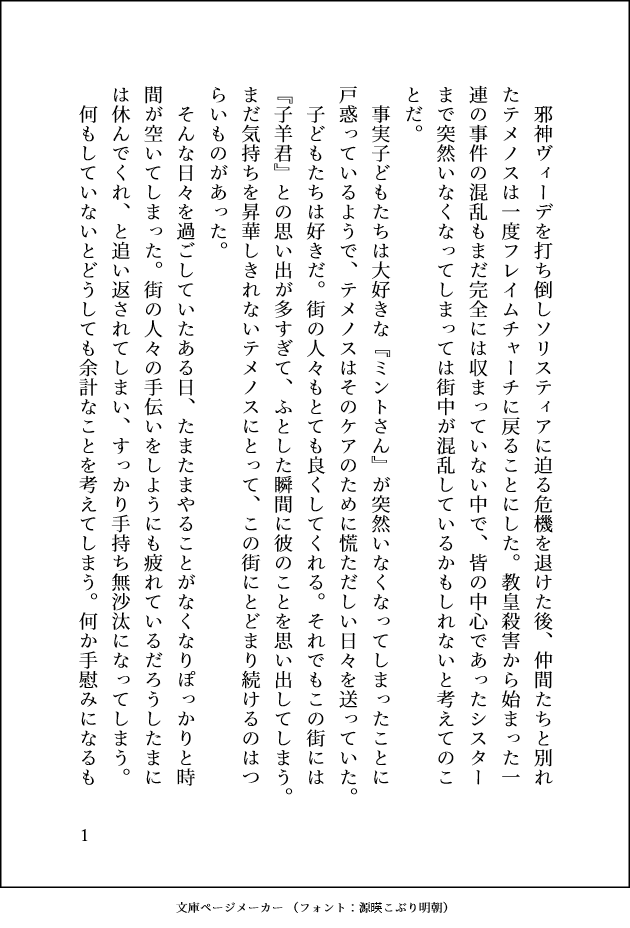 邪神ヴィーデを打ち倒しソリスティアに迫る危機を退けた後、仲間たちと別れ
たテメノスは一度フレイムチャーチに戻ることにした。教皇殺害から始まった一
連の事件の混乱もまだ完全には収まっていない中で、皆の中心であったシスター
まで突然いなくなってしまっては街中が混乱しているかもしれないと考えてのこ
とだ。
事実子どもたちは大好きな『ミントさん』が突然いなくなってしまったことに
戸惑っているようで、テメノスはそのケアのために慌ただしい日々を送っていた。
子どもたちは好きだ。街の人々もとても良くしてくれる。それでもこの街には
『子羊君』との思い出が多すぎて、ふとした瞬間に彼のことを思い出してしまう。
まだ気持ちを昇華しきれないテメノスにとって、この街にとどまり続けるのはつ
らいものがあった。
そんな日々を過ごしていたある日、たまたまやることがなくなりぽっかりと時
間が空いてしまった。街の人々の手伝いをしようにも疲れているだろうしたまに
は休んでくれ、と追い返されてしまい、すっかり手持ち無沙汰になってしまう。
何もしていないとどうしても余計なことを考えてしまう。何か手慰みになるも
1
文庫ページメーカー（フォント：源暎こぶり明朝）